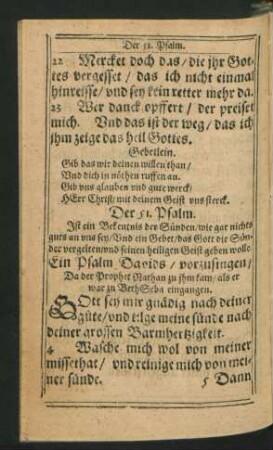 Der 51. Psalm.
22 Mercket doch das/ die jhr Got-
tes vergesset/ das ich nicht einmal
hinreisse/ vnd sey kein retter mehr da.
23 Wer danck opffert/ der preiset
mich. Vnd das ist der weg/ das ich
jhm zeige das heil Gottes.
Gebetlein.
Gib das wir deinen willen than/
Vnd dich in nöthen ruffen an.
Gib vns glauben vnd gute werck/
HErr Christ/ mit deinem Geist vns sterck.
Der 51. Psalm.
Ist ein Bekentnis der Sünden/ wie gar nichts
guts an vns sey/ Vnd ein Gebet/ das Gott die Sün-
de vergeben/ vnd seinen heiligen Geist geben wolle.
Ein Psalm Davids/ vorzusingen/
Da der Prophet Nathan zu jhm kam/ als er
war zu BethSeba eingangen.
GOtt sey mir gnädig nach deiner
güte/ vnd tilge meine sünde nach
deiner grossen Barmhertzigkeit.
4 Wasche mich wol von meiner
missethat/ vnd reinige mich von mei-
ner sünde. 5 Dann